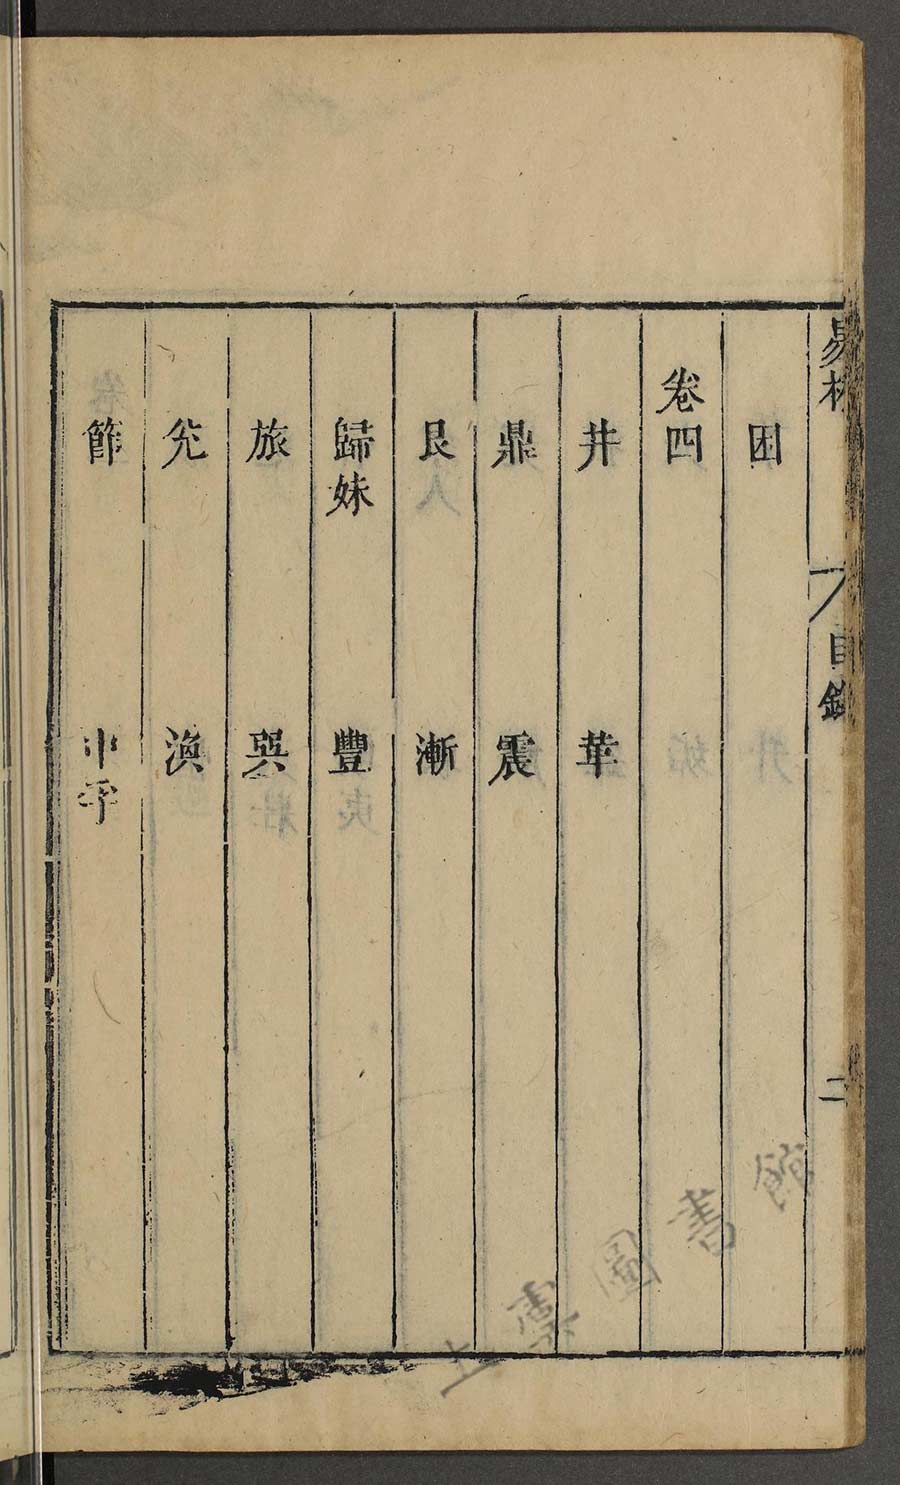 易林
目錄
二
困
卷四
井 革
鼎 震
艮 漸
歸妹 豐
旅 巽
兊 渙
節 中孚
圖書館